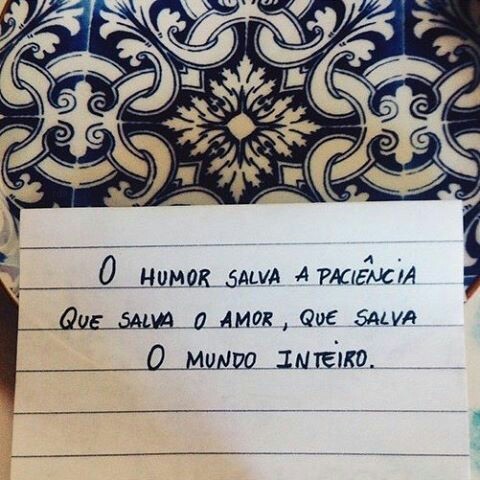 O HUMOR SALVA A PACIÊNCIA
QUE SALVA O AMOR, QUE SALVA
O MUNDO INTEIRO.